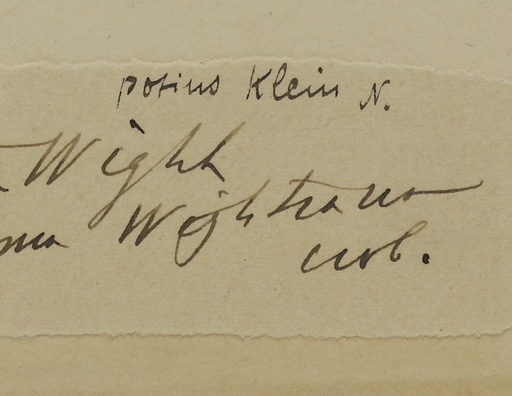 potius Klein N.
Wight
Wightiana
nob.